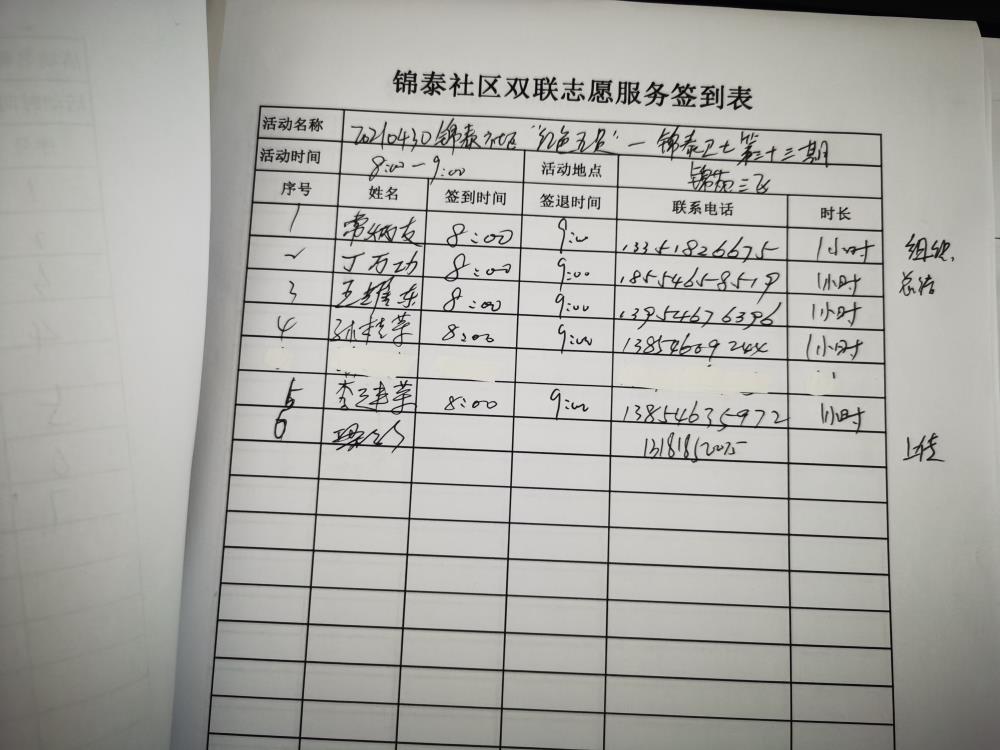 锦泰社区双联志愿服务签到表
活动名称 20210430锦泰社区"红色五月"—锦泰卫士第三十三期
活动时间 8:00-9:00 活动地点 锦苑三区
序号 姓名 签到时间 签退时间 联系电话 时长
1 常炳友 8:00 9:00 13351826675 1小时 组织
2 丁万功 8:00 9:00 18554658519 1小时 总结
3 王维东 8:00 9:00 13954676396 1小时
4 孙桂荣 8:00 9:00 1385460924 1小时
5 李连荣 8:00 9:00 13854635972 1小时
6 上传